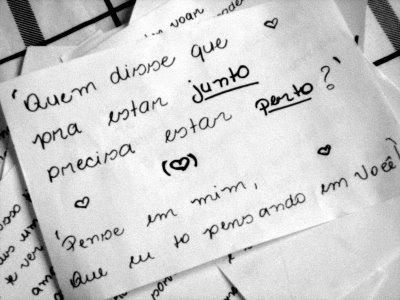 'Quem disse que
pra estar junto
precisa estar perto?'
'Pense em mim,
Que eu to pensando em você!'